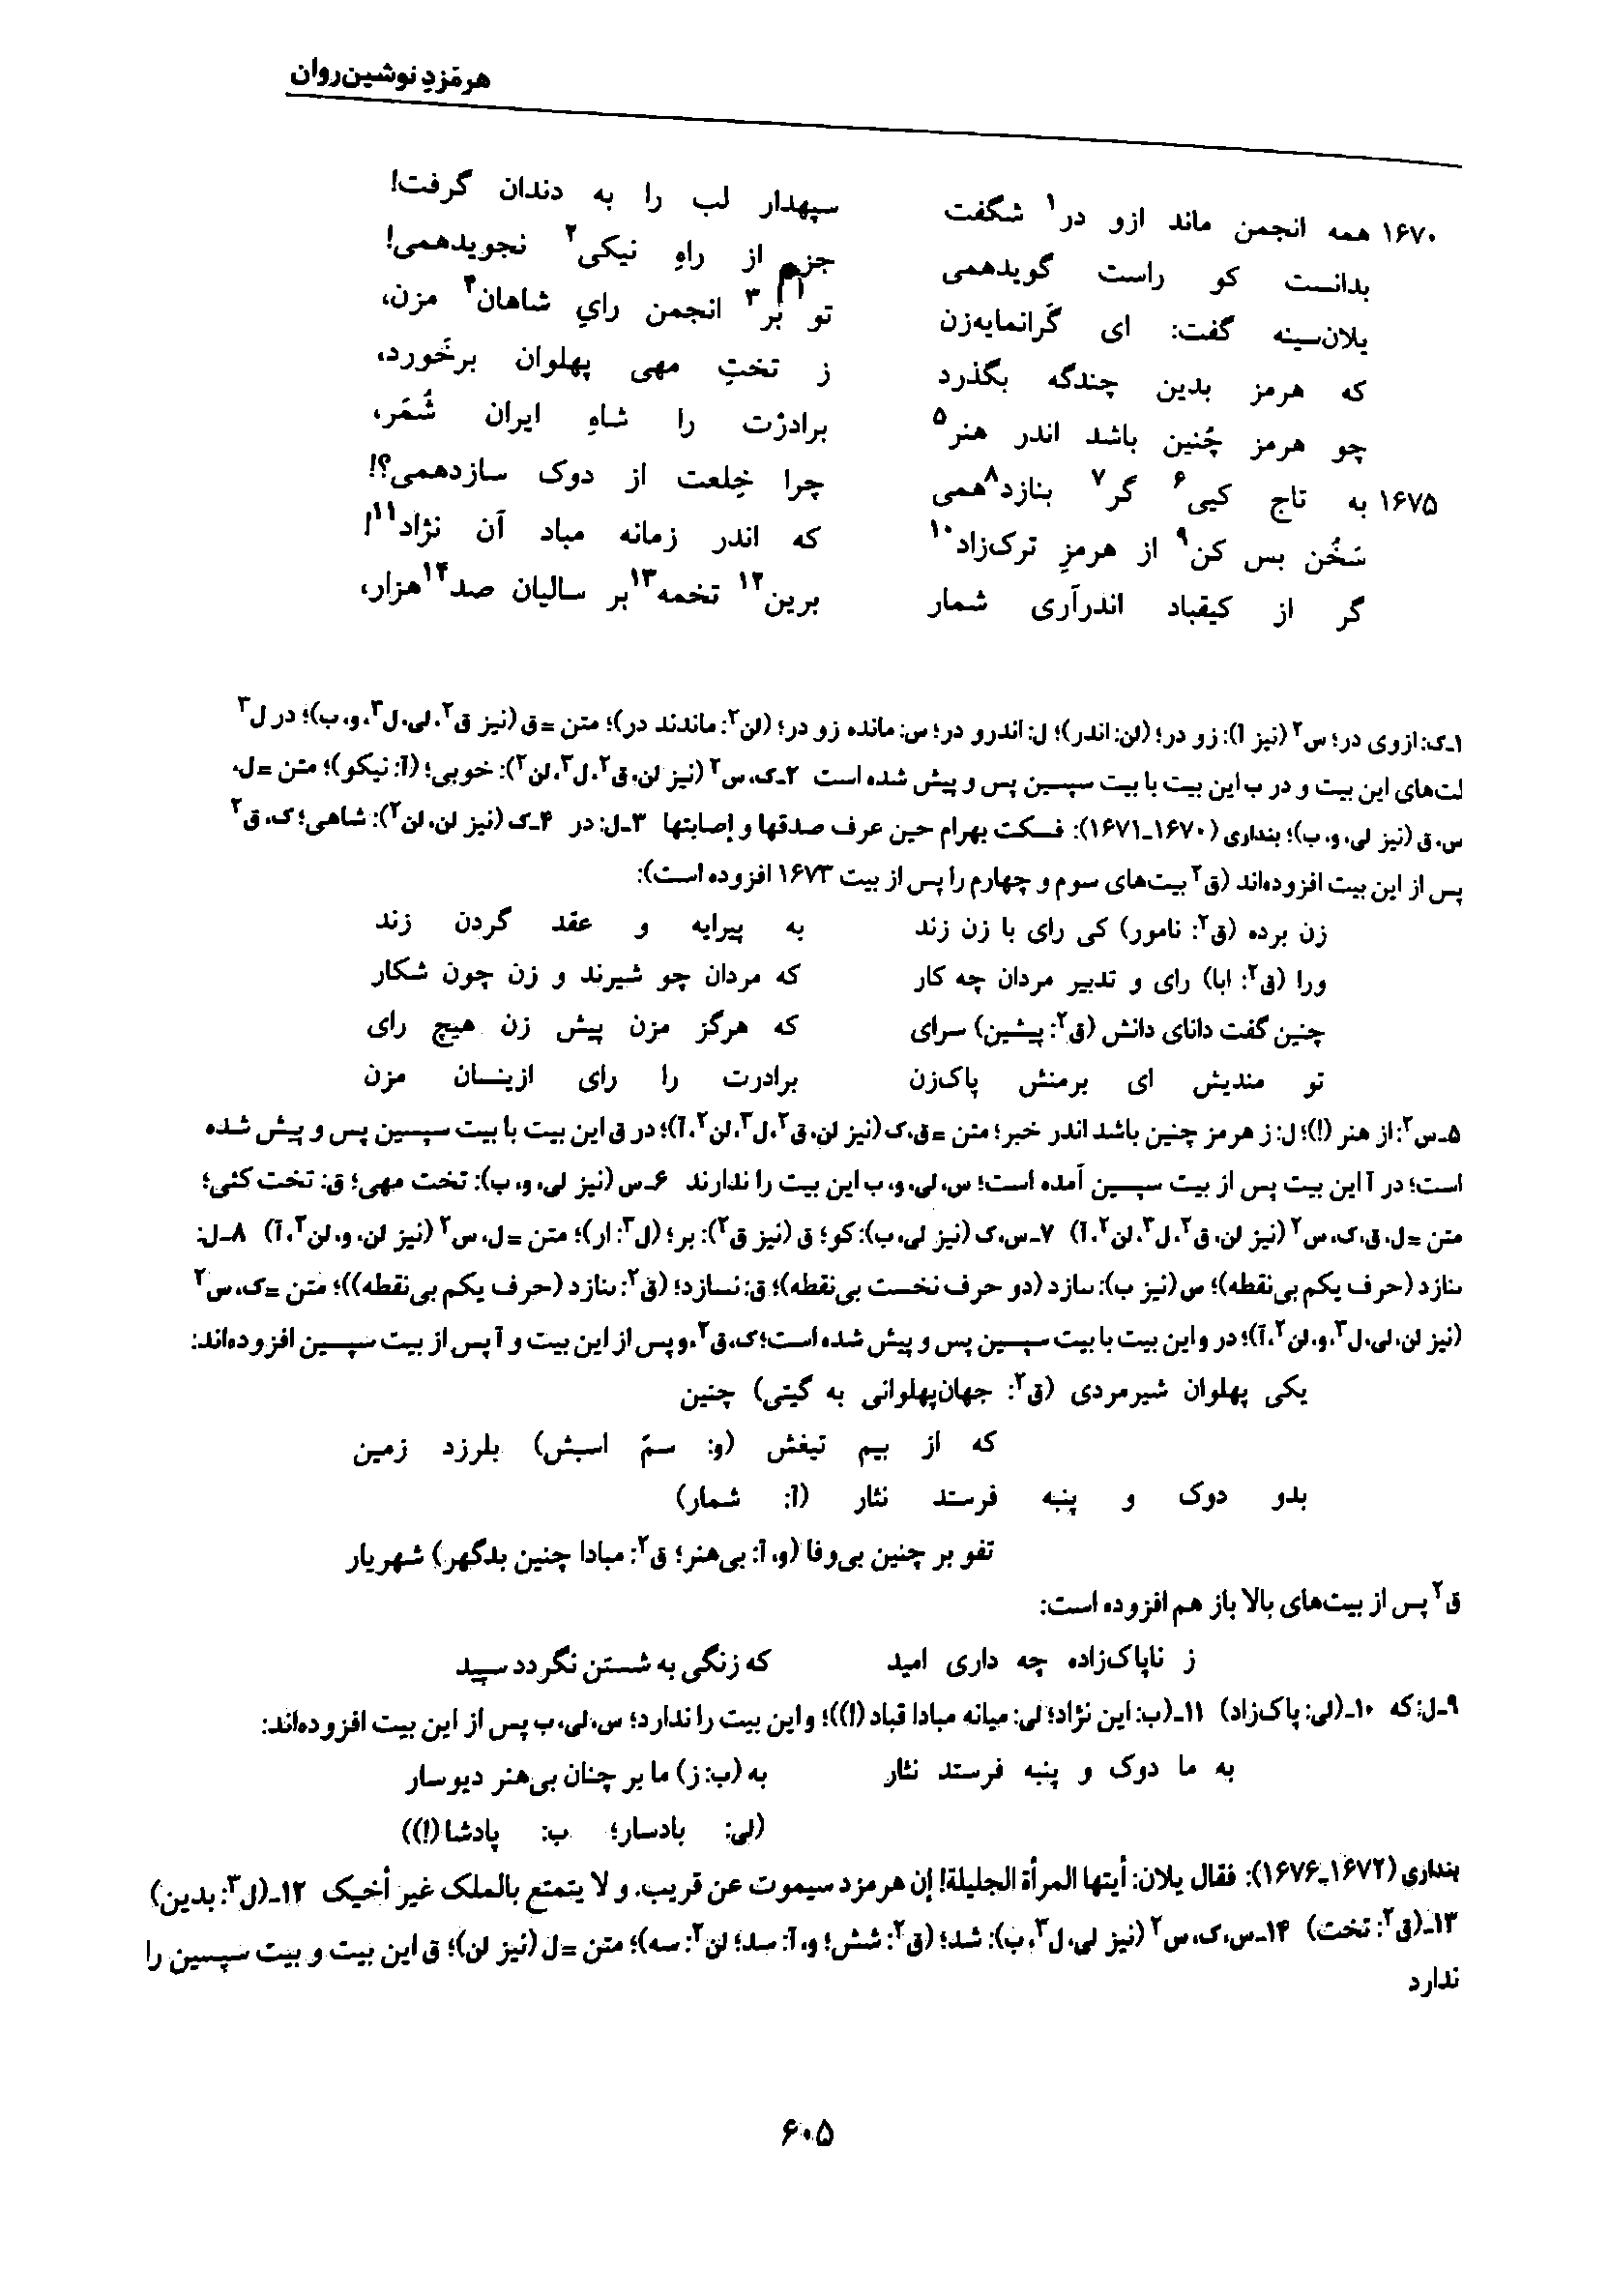 هرمَزدِ نوشین‌روان
۱۶۷۰ همه انجمن ماند ازو در۱ شگفت سپهدار لب را به دندان گرفت!
بدانست کو راست گویدهمی جزم از راهِ نیکی۲ نجویدهمی!
یلان‌سینه گفت: ای گرانمایه‌زن تو بر۳ انجمن رایِ شاهان۴ مزن،
که هرمز بدین چندگه بگذرد ز تختِ مهی پهلوان برخَورد،
چو هرمز چُنین باشد اندر هنر۵ برادرْت را شاهِ ایران شُمَر،
۱۶۷۵ به تاج کیی۶ گر۷ بنازد۸همی چرا خِلعت از دوک سازدهمی؟!
سَخُن بس کن۹ از هرمزِ ترک‌زاد۱۰ که اندر زمانه مباد آن نژاد۱۱!
گر از کیقباد اندرآری شمار برین۱۲ تخمه۱۳بر سالیان صد۱۴هزار،
۱ـک: ازوی در؛ س۲ (نیز آ): زو در؛ (لن: اندر)؛ ل: اندرو در؛ س: مانده زو در؛ (لن۲: ماندند در)؛ متن = ق (نیز ق۲، لی، ل۳، و، ب)؛ در ل۳
لت‌های این بیت و در ب این بیت با بیت سپسین پس و پیش شده است ۲ـک، س۲ (نیز لن، ق۲، ل۳، لن۲): خوبی؛ (آ: نیکو)؛ متن = ل،
س، ق (نیز لی، و، ب)؛ بنداری (۱۶۷۰ـ۱۶۷۱): فسکت بهرام حین عرف صدقها و إصابتها ۳ـل: در ۴ـک (نیز لن، لن۲): شاهی؛ ک، ق۲
پس از این بیت افزوده‌اند (ق۲ بیت‌های سوم و چهارم را پس از بیت ۱۶۷۳ افزوده است):
زن برده (ق۲: نامور) کی رای با زن زند به پیرایه و عقد گردن زند
ورا (ق۲: ابا) رای و تدبیر مردان چه کار که مردان چو شیرند و زن چون شکار
چنین گفت دانای دانش (ق۲: پیشین) سرای که هرگز مزن پیش زن هیچ رای
تو مندیش ای برمنش پاک‌زن برادرت را رای ازینسان مزن
۵ـس۲: از هنر (!)؛ ل: ز هرمز چنین باشد اندر خبر؛ متن = ق، ک (نیز لن، ق۲، ل۳، لن۲، آ)؛ در ق این بیت با بیت سپسین پس و پیش شده
است؛ در آ این بیت پس از بیت سپسین آمده است؛ س، لی، و، ب این بیت را ندارند ۶ـس (نیز لی، و، ب): تخت مهی؛ ق: تخت کئی؛
متن = ل، ق، ک، س۲ (نیز لن، ق۲، ل۳، لن۲، آ) ۷ـس، ک (نیز لی، ب): کو؛ ق (نیز ق۲): بر؛ (ل۳: ار)؛ متن = ل، س۲ (نیز لن، و، لن۲، آ) ۸ـل:
ٮنازد (حرف یکم بی‌نقطه)؛ س (نیز ب): ٮٮازد (دو حرف نخست بی‌نقطه)؛ ق: نسازد؛ (ق۲: ٮنازد (حرف یکم بی‌نقطه))؛ متن = ک، س۲
(نیز لن، لی، ل۳، و، لن۲، آ)؛ در و این بیت با بیت سپسین پس و پیش شده است؛ ک، ق۲، و پس از این بیت و آ پس از بیت سپسین افزوده‌اند:
یکی پهلوان شیرمردی (ق۲: جهان‌پهلوانی به گیتی) چنین
که از بیم تیغش (و: سمّ اسبش) بلرزد زمین
بدو دوک و پنبه فرستد نثار (آ: شمار)
تفو بر چنین بی‌وفا (و، آ: بی‌هنر؛ ق۲: مبادا چنین بدگهر) شهریار
ق۲ پس از بیت‌های بالا باز هم افزوده است:
ز ناپاک‌زاده چه داری امید که زنگی به شستن نگردد سپید
۹ـل: که ۱۰ـ(لی: پاک‌زاد) ۱۱ـ(ب: این نژاد؛ لی: میانه مبادا قباد (!))؛ و این بیت را ندارد؛ س، لی، ب پس از این بیت افزوده‌اند:
به ما دوک و پنبه فرستد نثار به (ب: ز) ما بر چنان بی‌هنر دیوسار
(لی: بادسار؛ ب: پادشا (!))
بنداری (۱۶۷۲ـ۱۶۷۶): فقال یلان: أیتها المرأة الجلیلة! إن هرمزد سیموت عن قریب، و لا یتمتع بالملک غیر أخیک ۱۲ـ(ل۳: بدین)
۱۳ـ(ق۲: تخت) ۱۴ـس، ک، س۲ (نیز لی، ل۳، ب): شد؛ (ق۲: شش؛ و، آ: سد؛ لن۲: سه)؛ متن = ل (نیز لن)؛ ق این بیت و بیت سپسین را
ندارد
۶۰۵